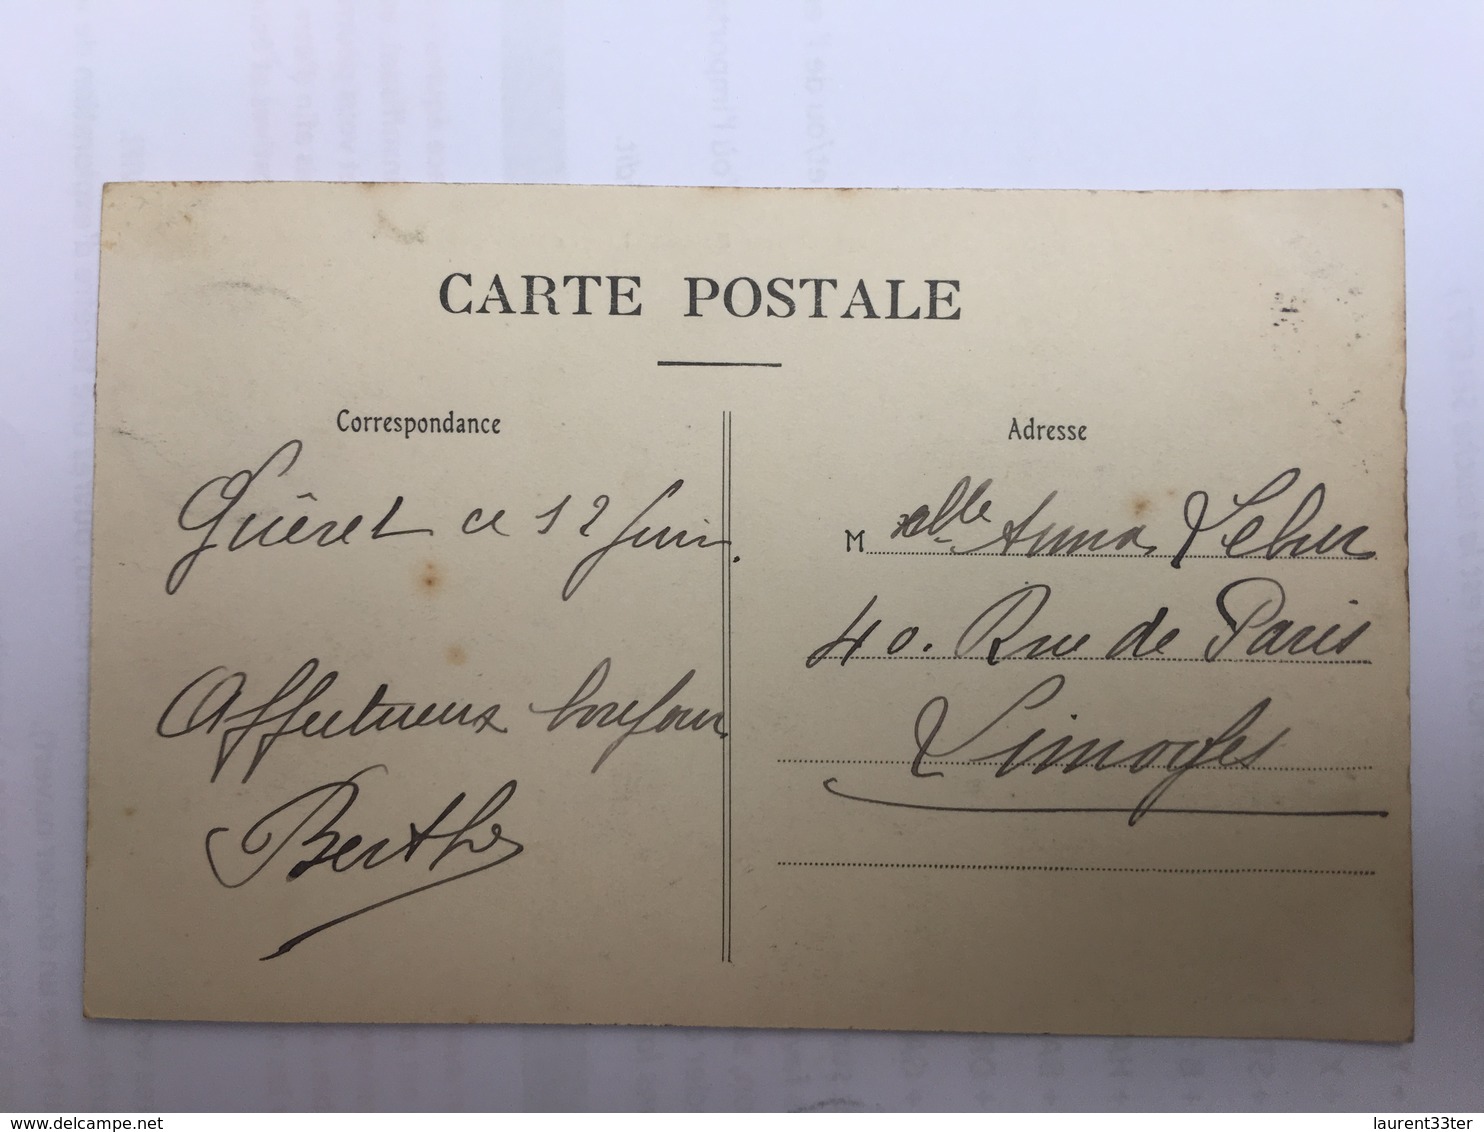 CARTE POSTALE
Correspondance
Guéret ce 12 Juin.
Affectueux bonjour
Berthe
Adresse
M elle Anna
40. Rue de Paris
Limoges
laurent33ter